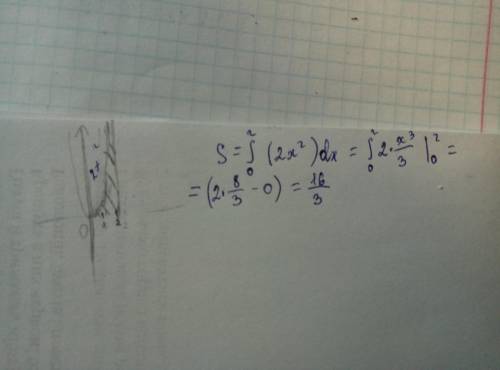 S = ∫₀² (2x²) dx = ∫₀² 2·x³/3 |₀² =
= (2·8/3 − 0) = 16/3
2x²
0